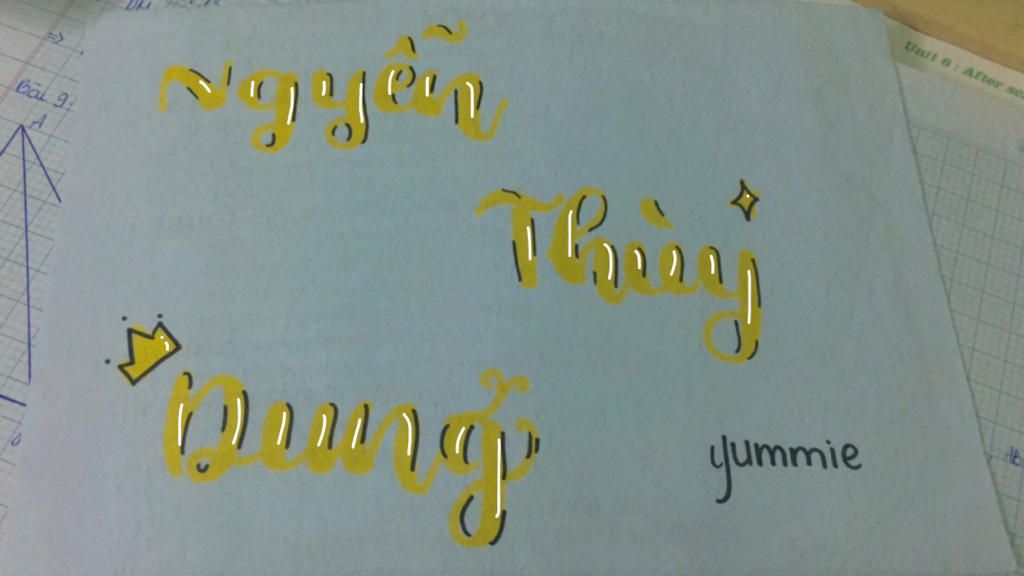 Nguyễn
Thùy
Dung
yummie
Bài 9:
A
Unit 6 : After